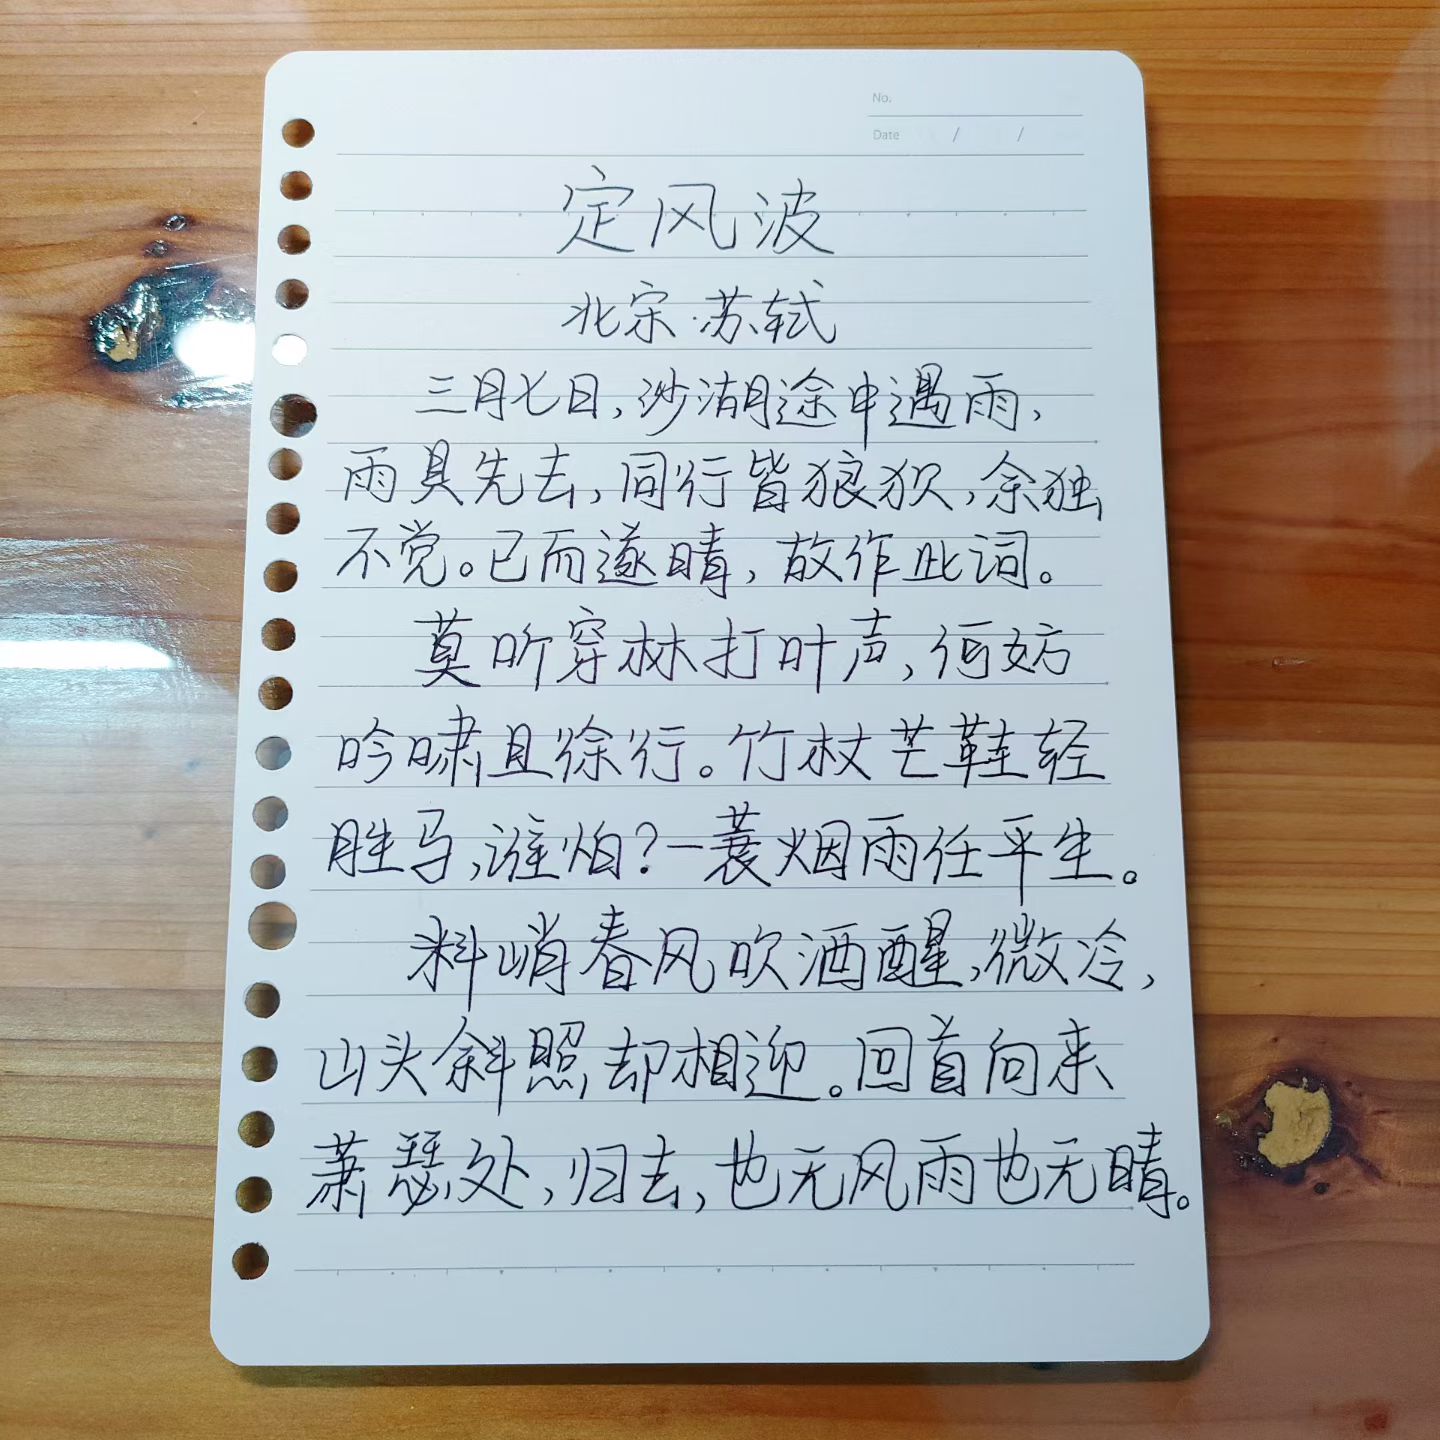 No.
Date / /
定风波
北宋·苏轼
三月七日,沙湖途中遇雨,
雨具先去,同行皆狼狈,余独
不觉。已而遂晴,故作此词。
莫听穿林打叶声,何妨
吟啸且徐行。竹杖芒鞋轻
胜马,谁怕?一蓑烟雨任平生。
料峭春风吹酒醒,微冷,
山头斜照却相迎。回首向来
萧瑟处,归去,也无风雨也无晴。